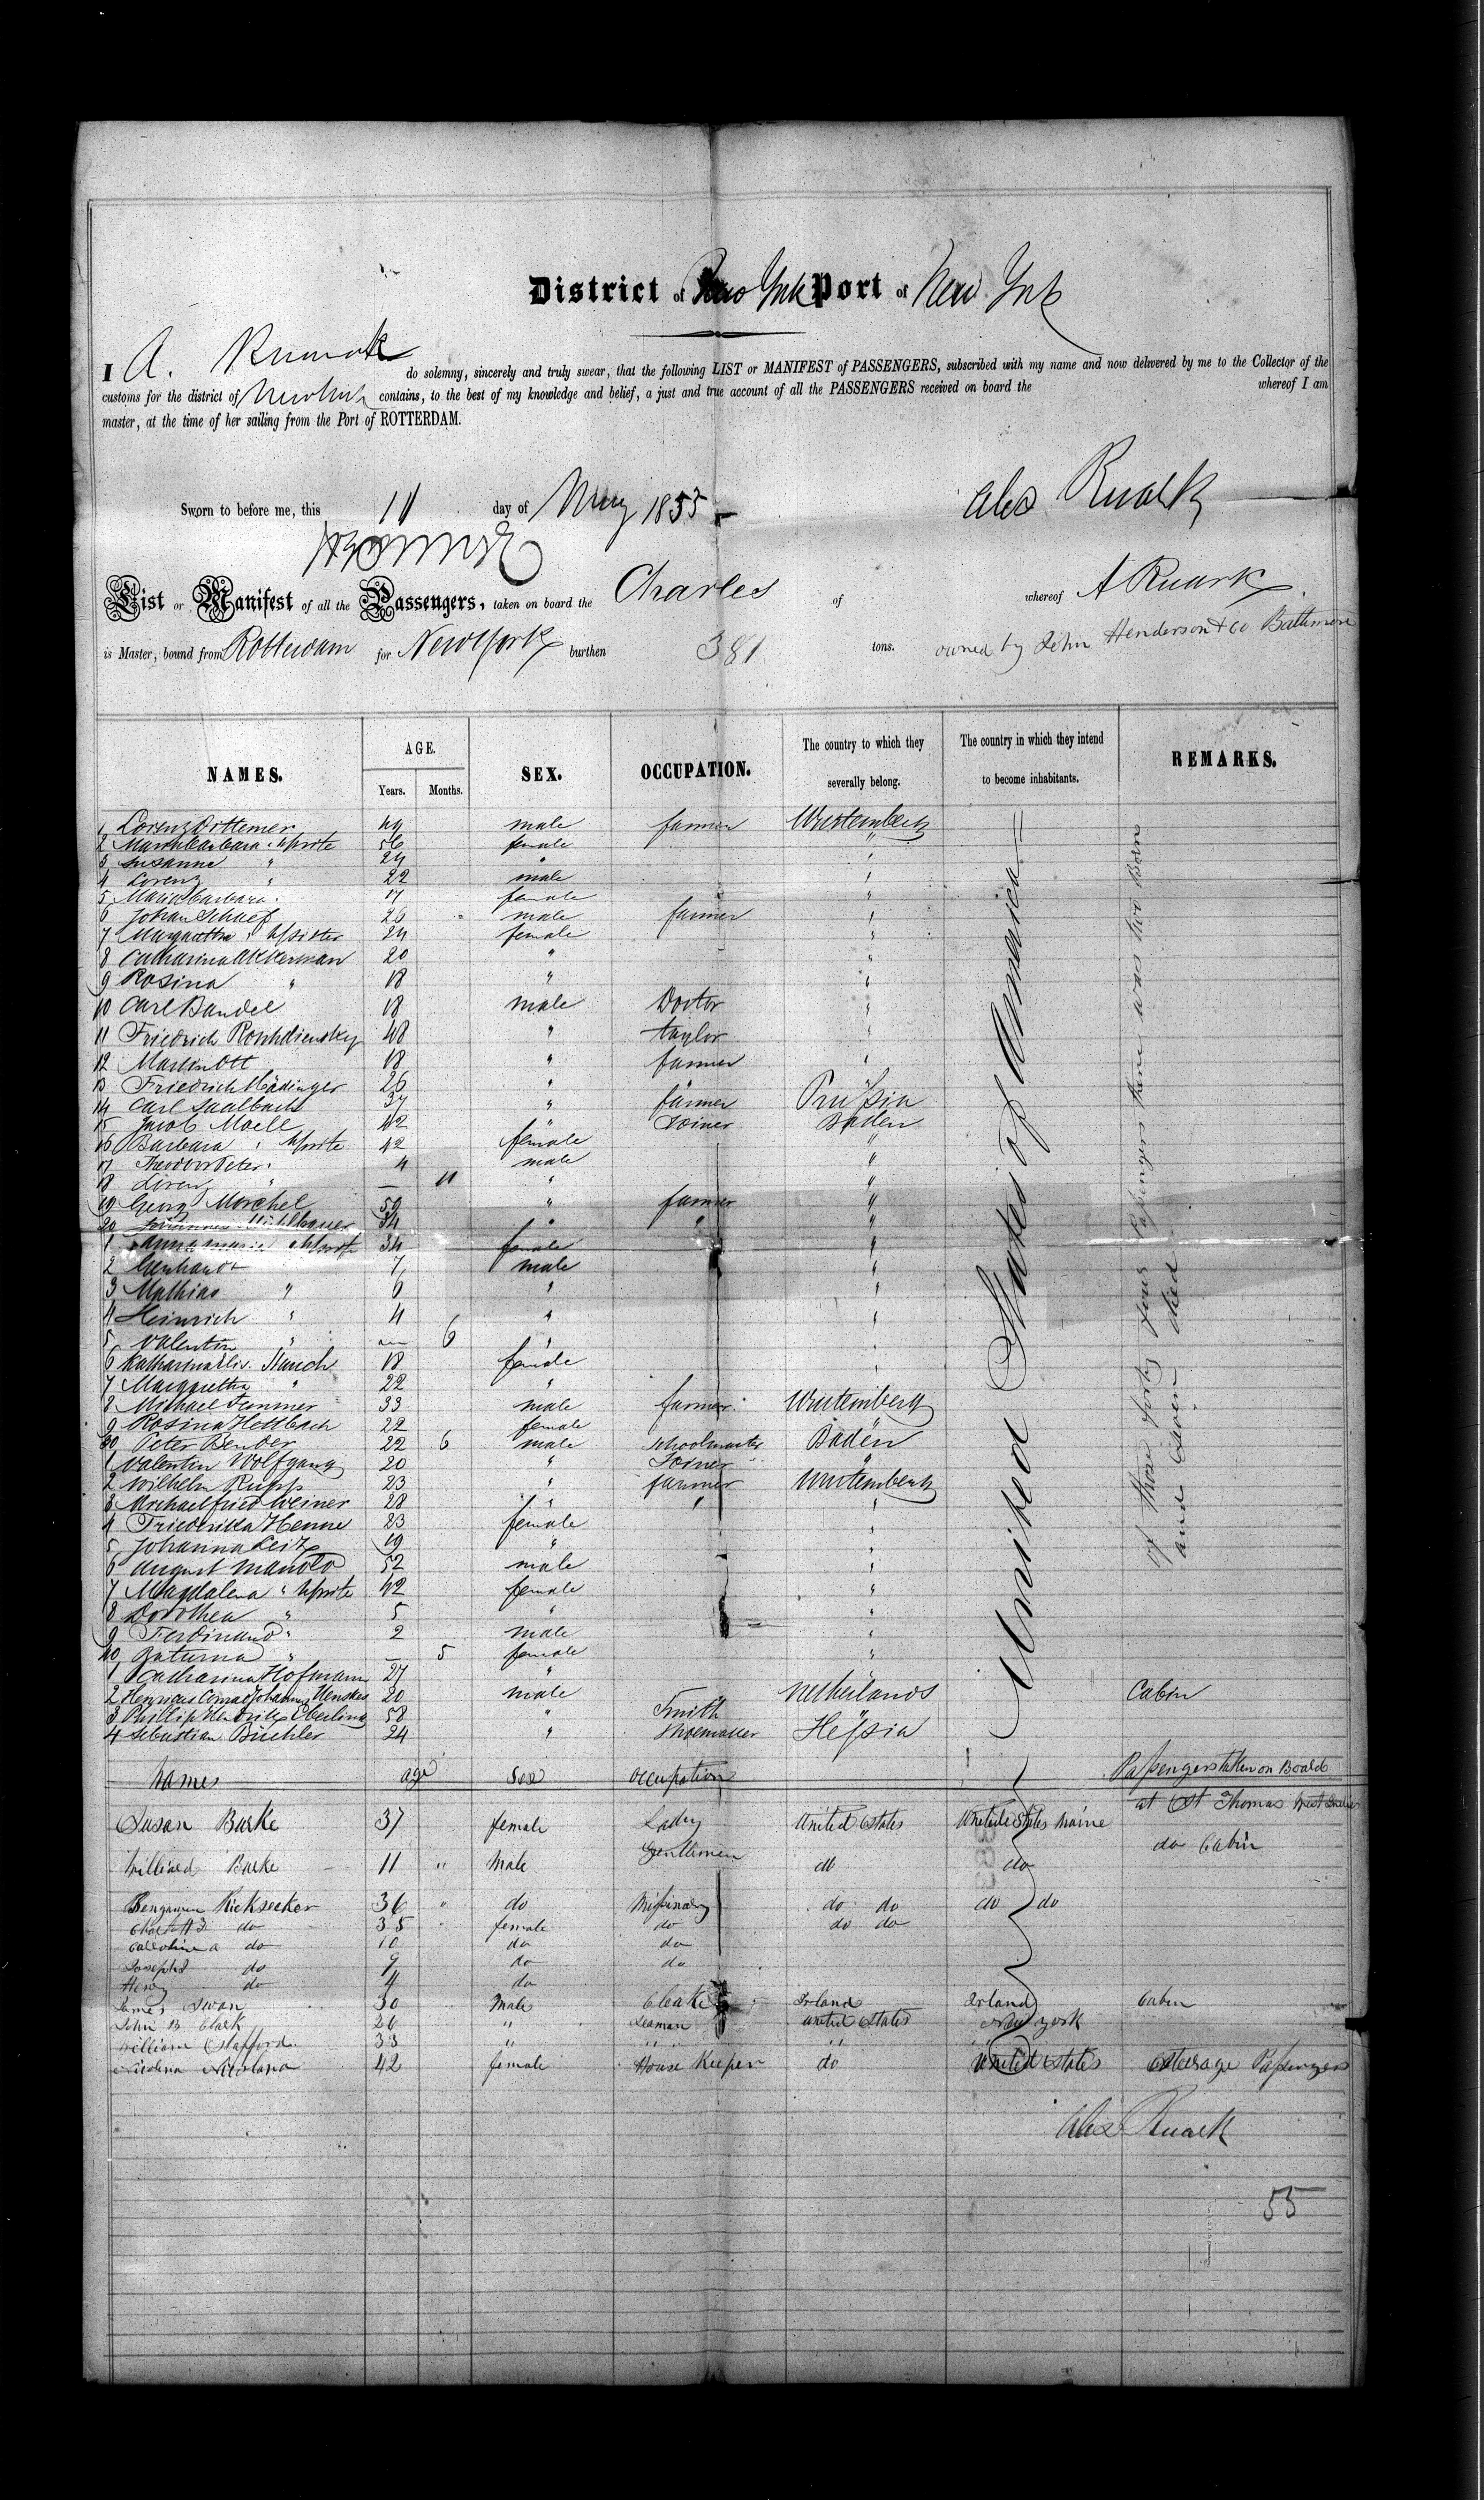 District of New York Port of New York
I A. Ruark do solemny, sincerely and truly swear, that the following LIST or MANIFEST of PASSENGERS, subscribed with my name and now delivered by me to the Collector of the
customs for the district of New York contains, to the best of my knowledge and belief, a just and true account of all the PASSENGERS received on board the whereof I am
master, at the time of her sailing from the Port of ROTTERDAM.
Alex Ruark
Sworn to before me, this 11 day of May 1853
List or Manifest of all the Passengers, taken on board the Charles of whereof A Ruark
is Master, bound from Rotterdam for New York burthen 381 tons. owned by John Henderson & Co Baltimore
NAMES. AGE. Years. Months. SEX. OCCUPATION. The country to which they severally belong. The country in which they intend to become inhabitants. REMARKS.
United States of America
of those forty four Passengers there was two Born
and Seven died
1 Lorenz Dittemer 49 male farmer Wurtemberg
2 Maria Barbara " 56 female "
3 Susanne " 24 " "
4 Lorenz " 22 male "
5 Maria Barbara " 17 female "
6 Johan Schaef 26 male farmer "
7 Margaretha " 24 female "
8 Catharina Akkerman 20 " "
9 Rosina " 18 " "
10 Carl Bandel 18 male Doctor "
11 Friedrich 48 " taylor "
12 Martin Ott 18 " farmer "
13 Friedrich 26 "
14 Carl Saalbach 37 " farmer Prußia
15 Jacob Moell 42 " Joiner Baden
16 Barbara " 42 female "
17 Theodor Peter " 4 male "
18 Lorenz " — 11 " "
19 Georg Morchel 59 " farmer "
20 Johannes Mühlbauer 34 " " "
1 Anna Maria 34 female "
2 Gerhard 7 male "
3 Mathias " 6 " "
4 Heinrich " 4 " "
5 Valentin " — 6 " "
6 18 female "
7 Margaretha " 22 " "
8 Michael 33 male farmer Wurtemberg
9 Rosina Hellbach 22 female
30 Peter Bender 22 6 male Schoolmaster Baden
1 Valentin Wolfgang 20 " Joiner "
2 Wilhelm Rupp 23 " farmer Wurtemberg
3 Michael 28 " " "
4 Friederika Henne 23 female "
5 Johanna Leitz 19 " "
6 August 52 male "
7 Magdalena " 42 female "
8 Dorothea " 5 " "
9 Ferdinand " 2 male "
40 " — 5 female "
1 Catharina Hofmann 27 " "
2 Henricus Conrad Johannes Henskes 20 male Netherlands Cabin
3 Phillip Hendrik Eberling 58 " Smith
4 Sebastian Büchler 24 " Shoemaker Heßia
Names age Sex Occupation Paßengers taken on Board
at St Thomas West Indies
Susan Burke 37 female Lady United States United States Maine
do Cabin
Burke 11 " Male Gentlemen do do
Benjamin Ricksecker 36 " do Mißinary do do do do
do 35 " female do do do
Carolina do 10 do do
Joseph do 9 do do
Henry do 4 do
James Swan 30 Male Irland Irland Cabin
John B Clark 26 " Seaman United States New York
William Stafford 33 " " " " "
42 female House Keeper do United States Steerage Paßengers
Alex Ruark
55